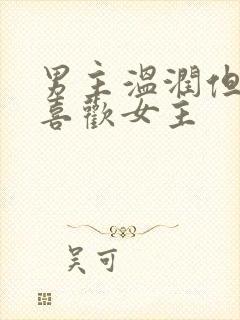 男主溫潤但
喜歡女主
吴可